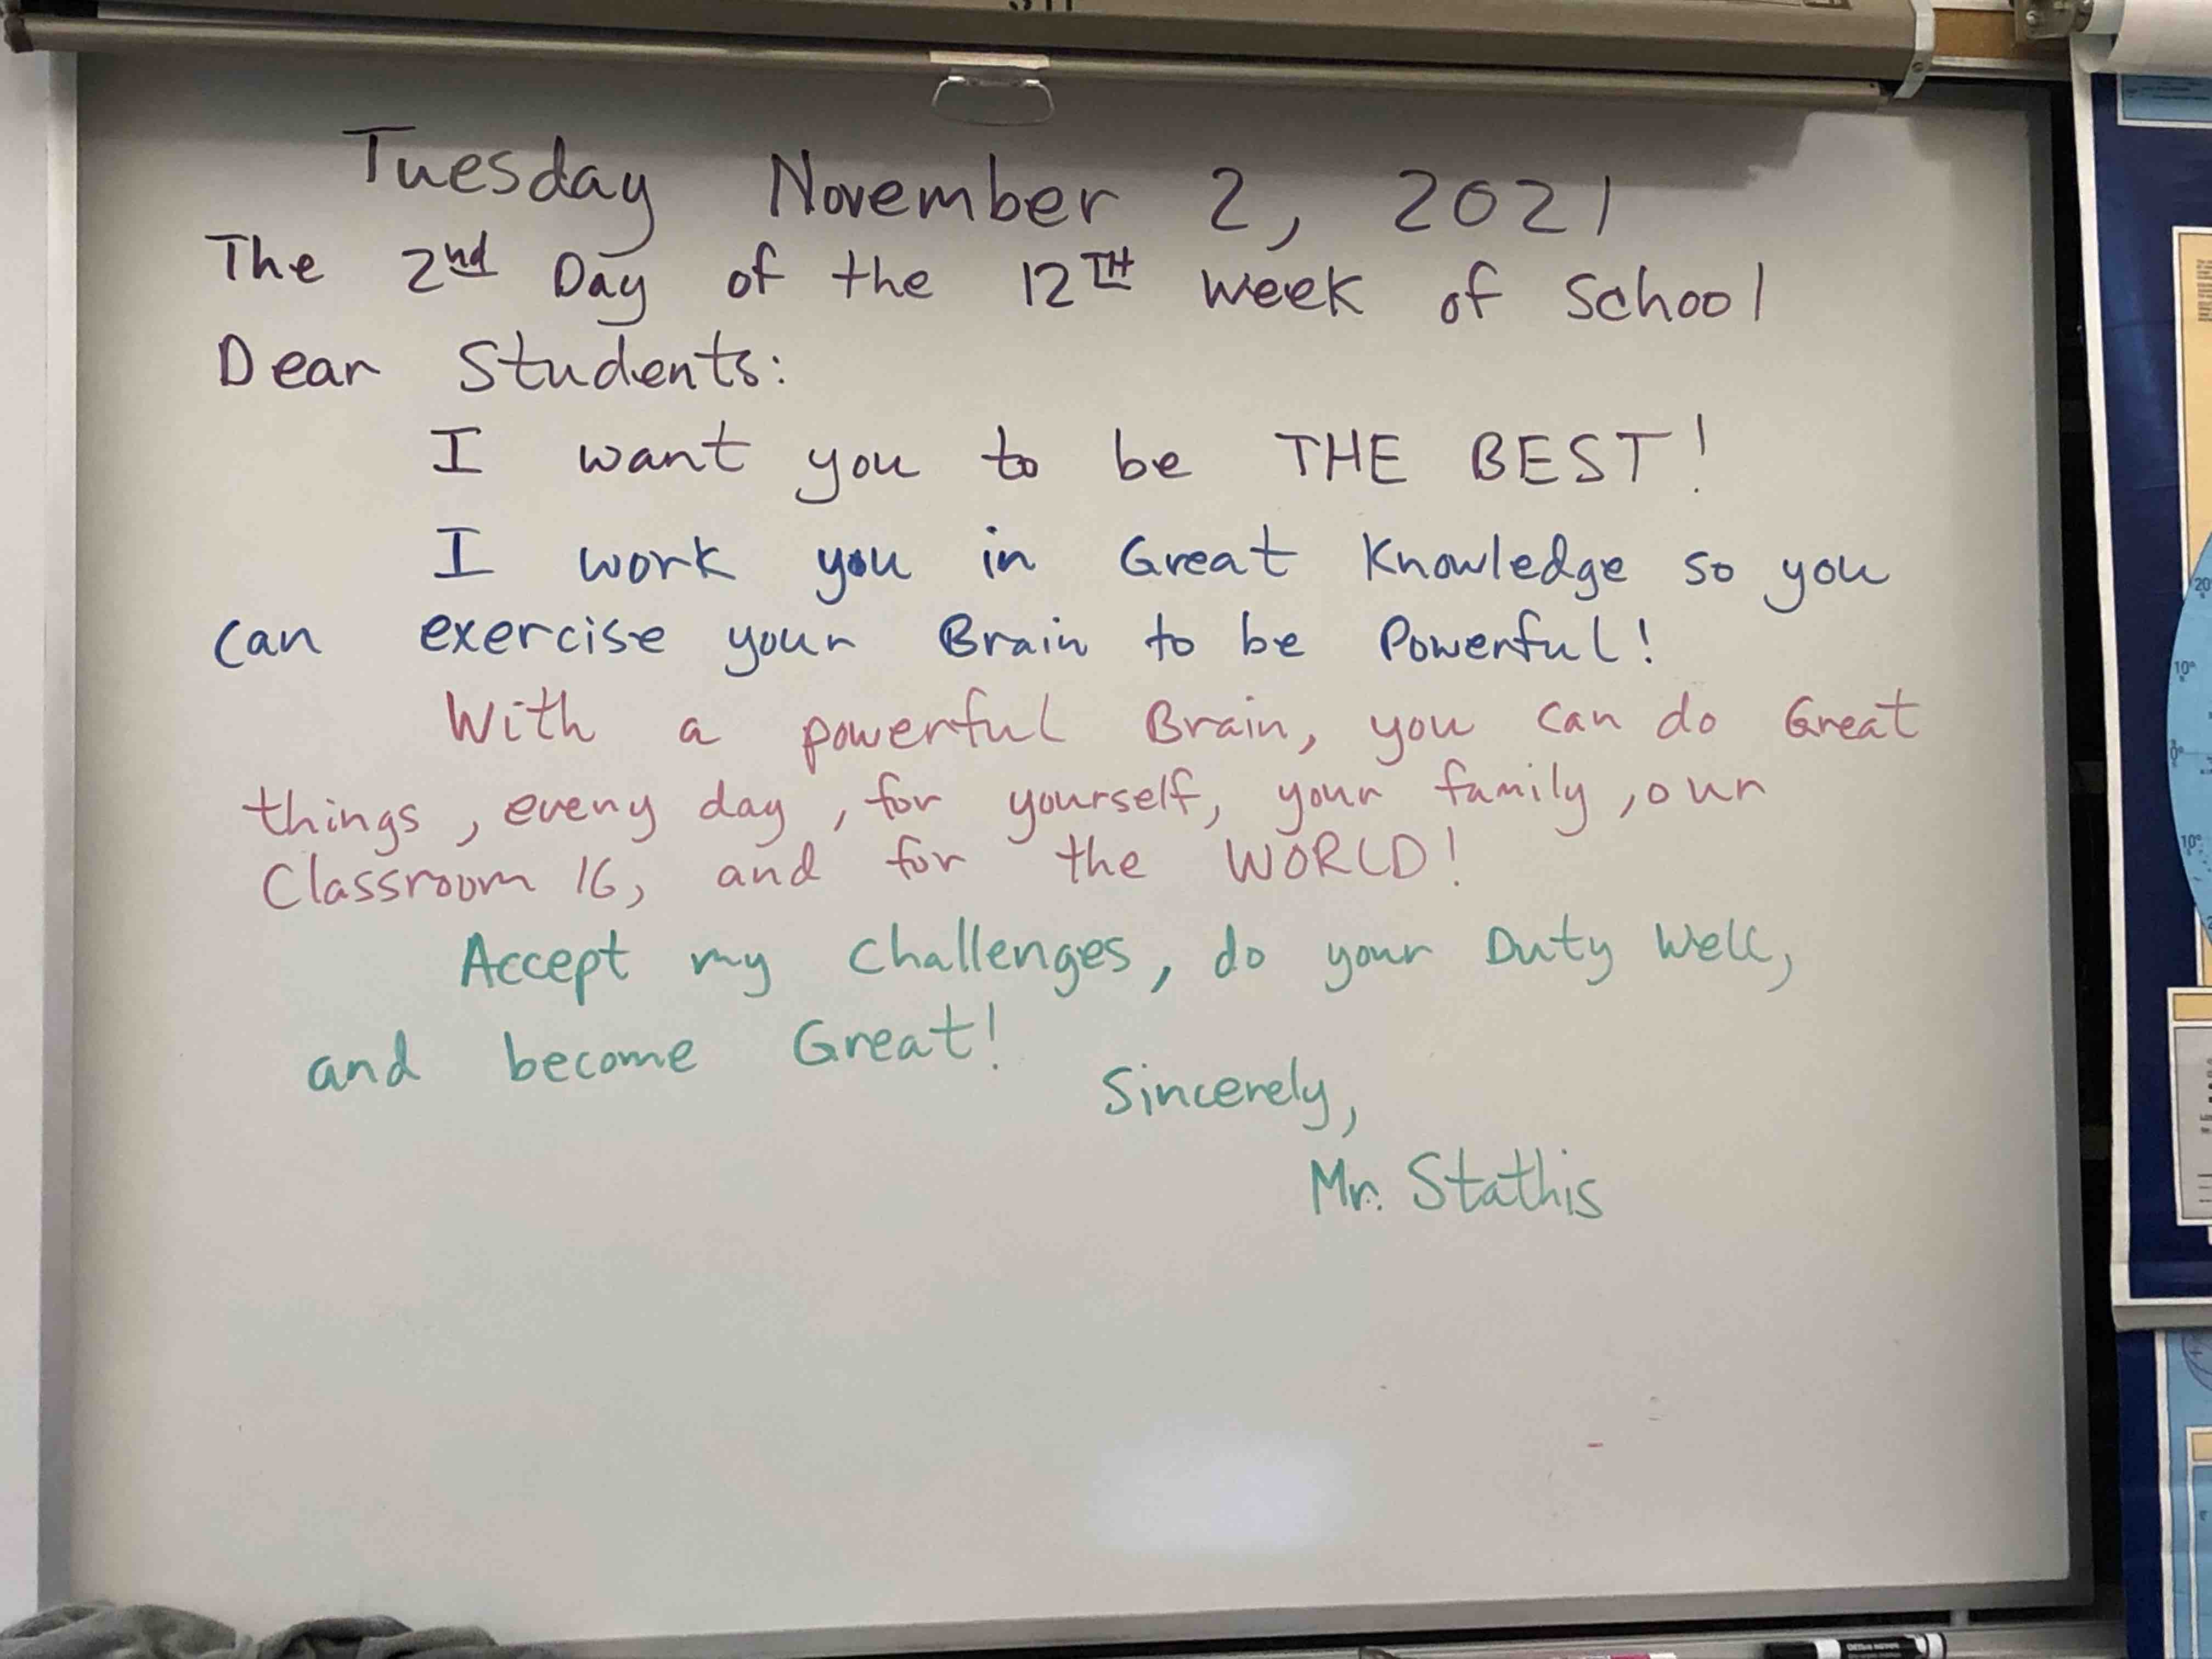 Tuesday November 2, 2021
The 2nd Day of the 12TH week of School
Dear Students:
I want you to be THE BEST!
I work you in Great Knowledge so you
can exercise your Brain to be Powerful!
With a powerful Brain, you can do Great
things, every day, for yourself, your family, our
Classroom 16, and for the WORLD!
Accept my Challenges, do your Duty Well,
and become Great!
Sincerely,
Mr. Stathis
20°
10°
0°
10°